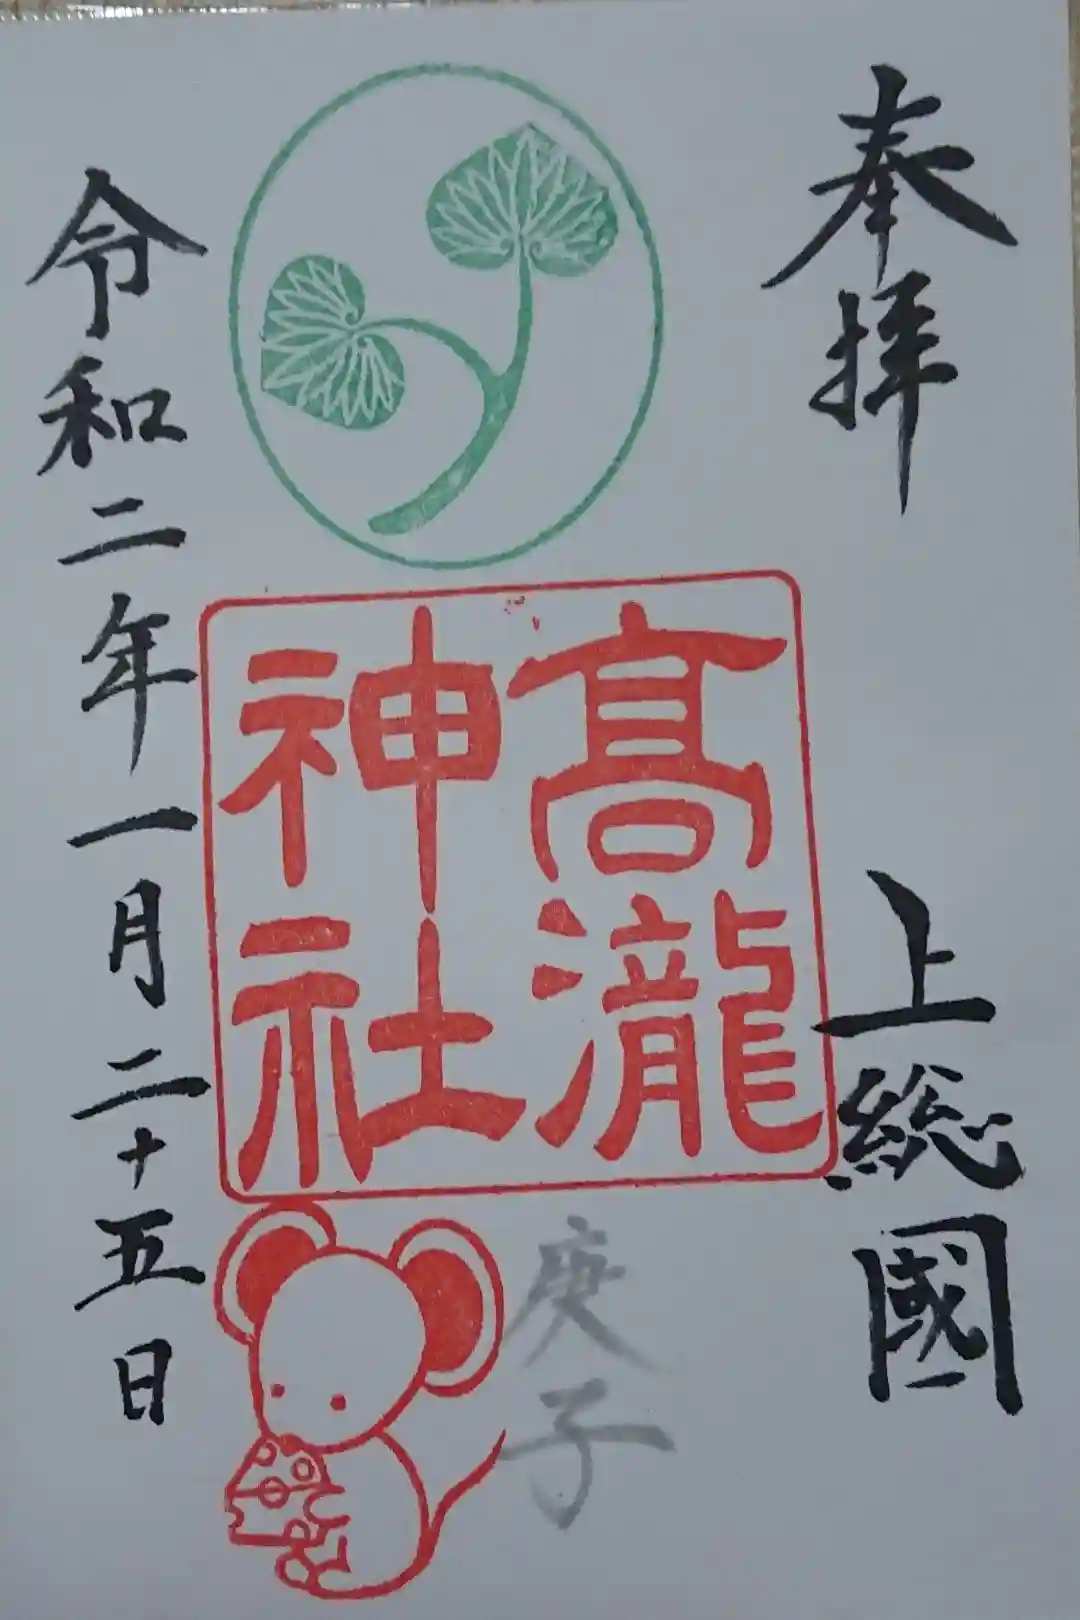 奉拝
上総國
髙瀧
神社
庚子
令和二年一月二十五日